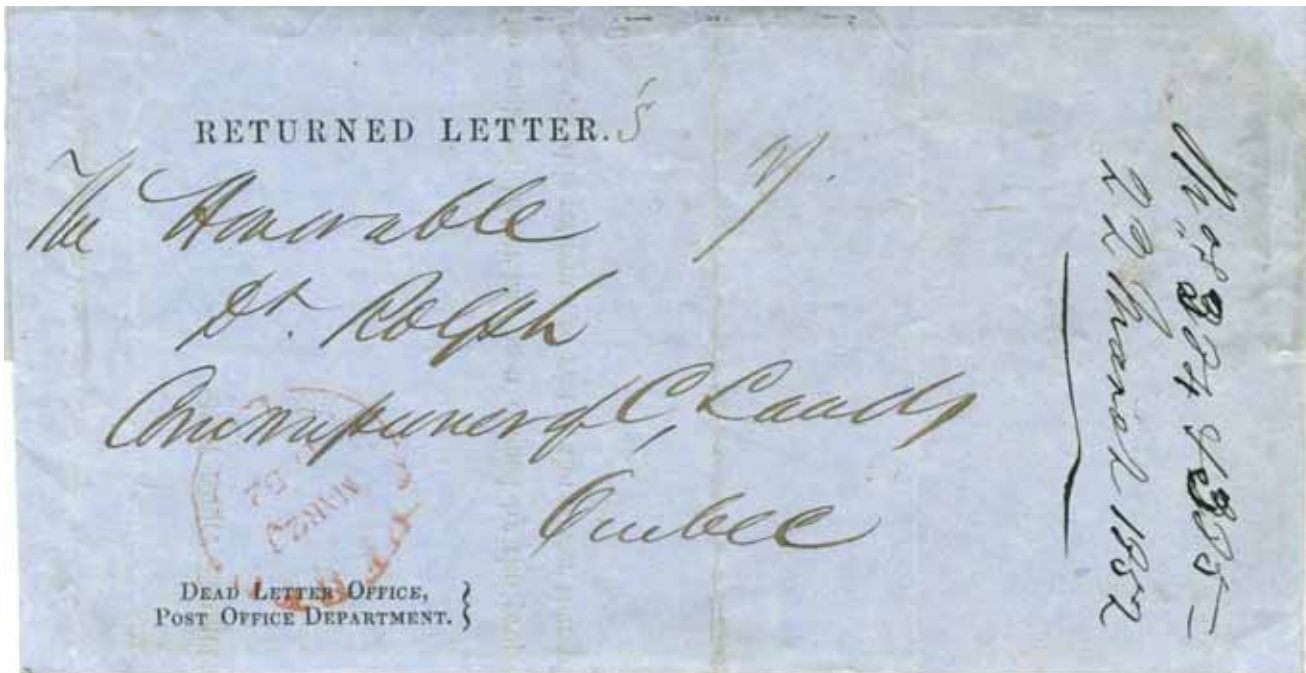 RETURNED LETTER.
The Honorable
Dr. Rolph
Commissioner of C. Lands
Quebec
DEAD LETTER OFFICE,
POST OFFICE DEPARTMENT.
22 March 1852